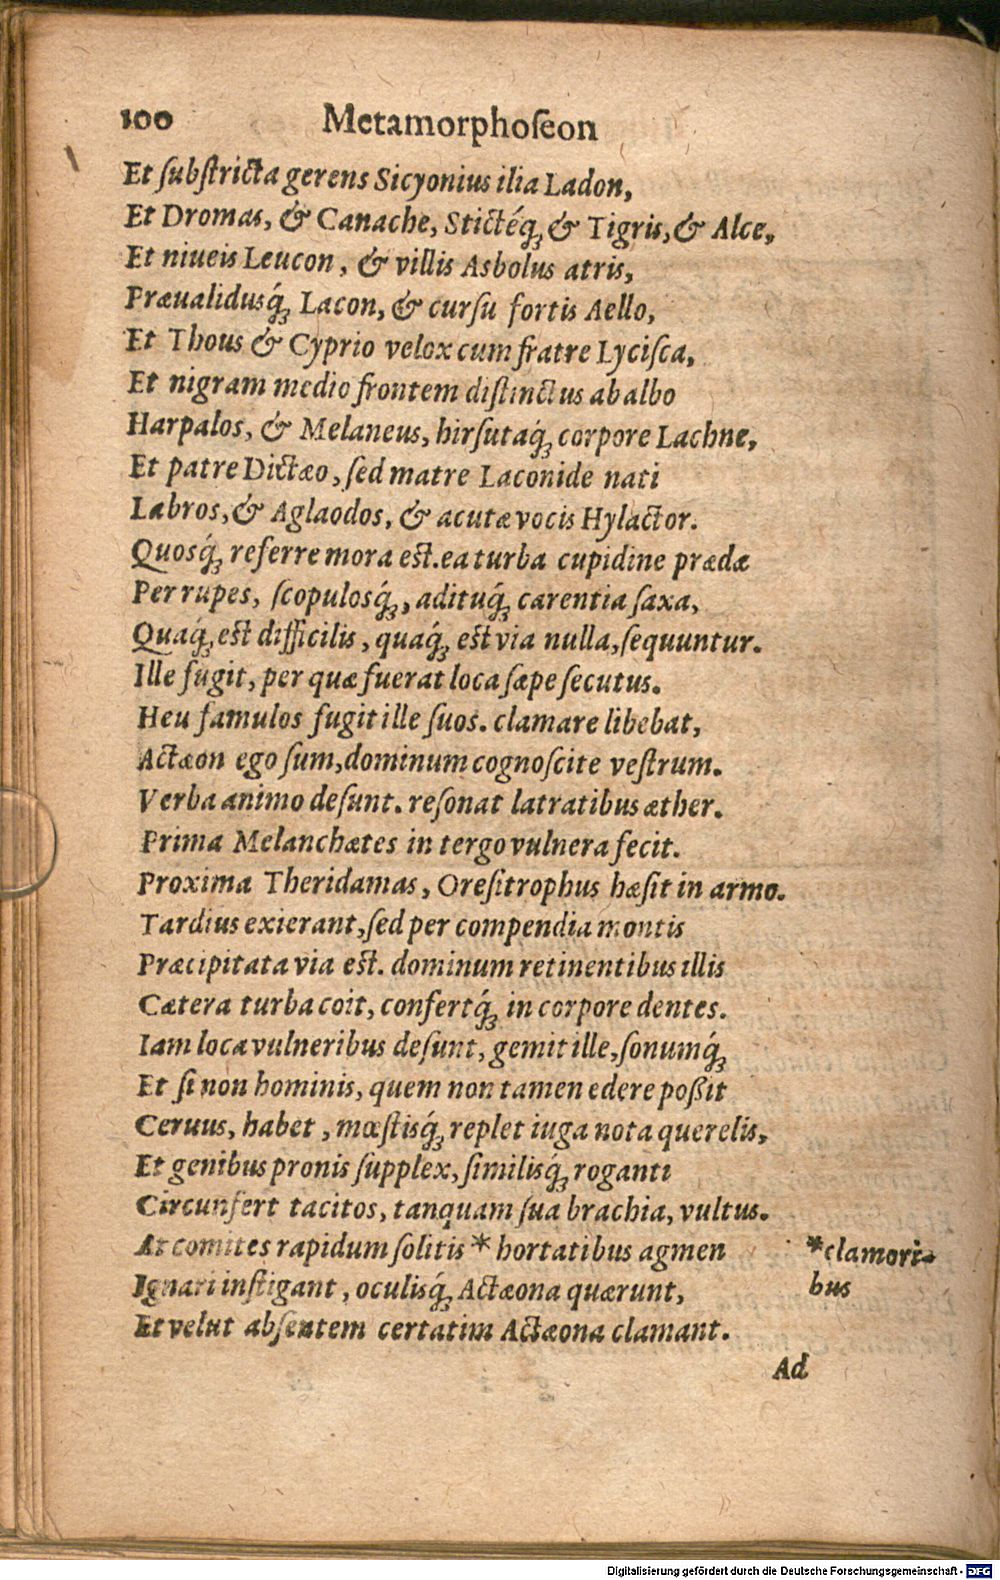 100 Metamorphoſeon
Et ſubſtricta gerens Sicyonius ilia Ladon,
Et Dromas, & Canache, Sticteq́ꝫ & Tigris, & Alce,
Et niueis Leucon, & villis Asbolus atris,
Præualidusq́ꝫ Lacon, & curſu fortis Aello,
Et Thous & Cyprio velox cum fratre Lyciſca,
Et nigram medio frontem diſtinctus ab albo
Harpalos, & Melaneus, hirſutaq́ꝫ corpore Lachne,
Et patre Dictæo, ſed matre Laconide nati
Labros, & Aglaodos, & acutæ vocis Hylactor.
Quosq́ꝫ referre mora eſt. ea turba cupidine prædæ
Per rupes, ſcopulosq́ꝫ, adituq́ꝫ carentia ſaxa,
Quaq́ꝫ eſt difficilis, quaq́ꝫ eſt via nulla, ſequuntur.
Ille fugit, per quæ fuerat loca ſæpe ſecutus.
Heu famulos fugit ille ſuos. clamare libebat,
Actæon ego ſum, dominum cognoſcite veſtrum.
Verba animo deſunt. reſonat latratibus æther.
Prima Melanchætes in tergo vulnera fecit.
Proxima Theridamas, Oreſitrophus hæſit in armo.
Tardius exierant, ſed per compendia montis
Præcipitata via eſt. dominum retinentibus illis
Cætera turba coit, confertq́ꝫ in corpore dentes.
Iam loca vulneribus deſunt, gemit ille, ſonumq́ꝫ
Et ſi non hominis, quem non tamen edere poßit
Ceruus, habet, mœſtisq́ꝫ replet iuga nota querelis,
Et genibus pronis ſupplex, ſimilisq́ꝫ roganti
Circunfert tacitos, tanquam ſua brachia, vultus.
At comites rapidum ſolitis * hortatibus agmen *clamori-
Ignari inſtigant, oculisq́ꝫ Actæona quærunt, bus
Et velut abſentem certatim Actæona clamant.
Ad
Digitalisierung gefördert durch die Deutsche Forschungsgemeinschaft - DFG